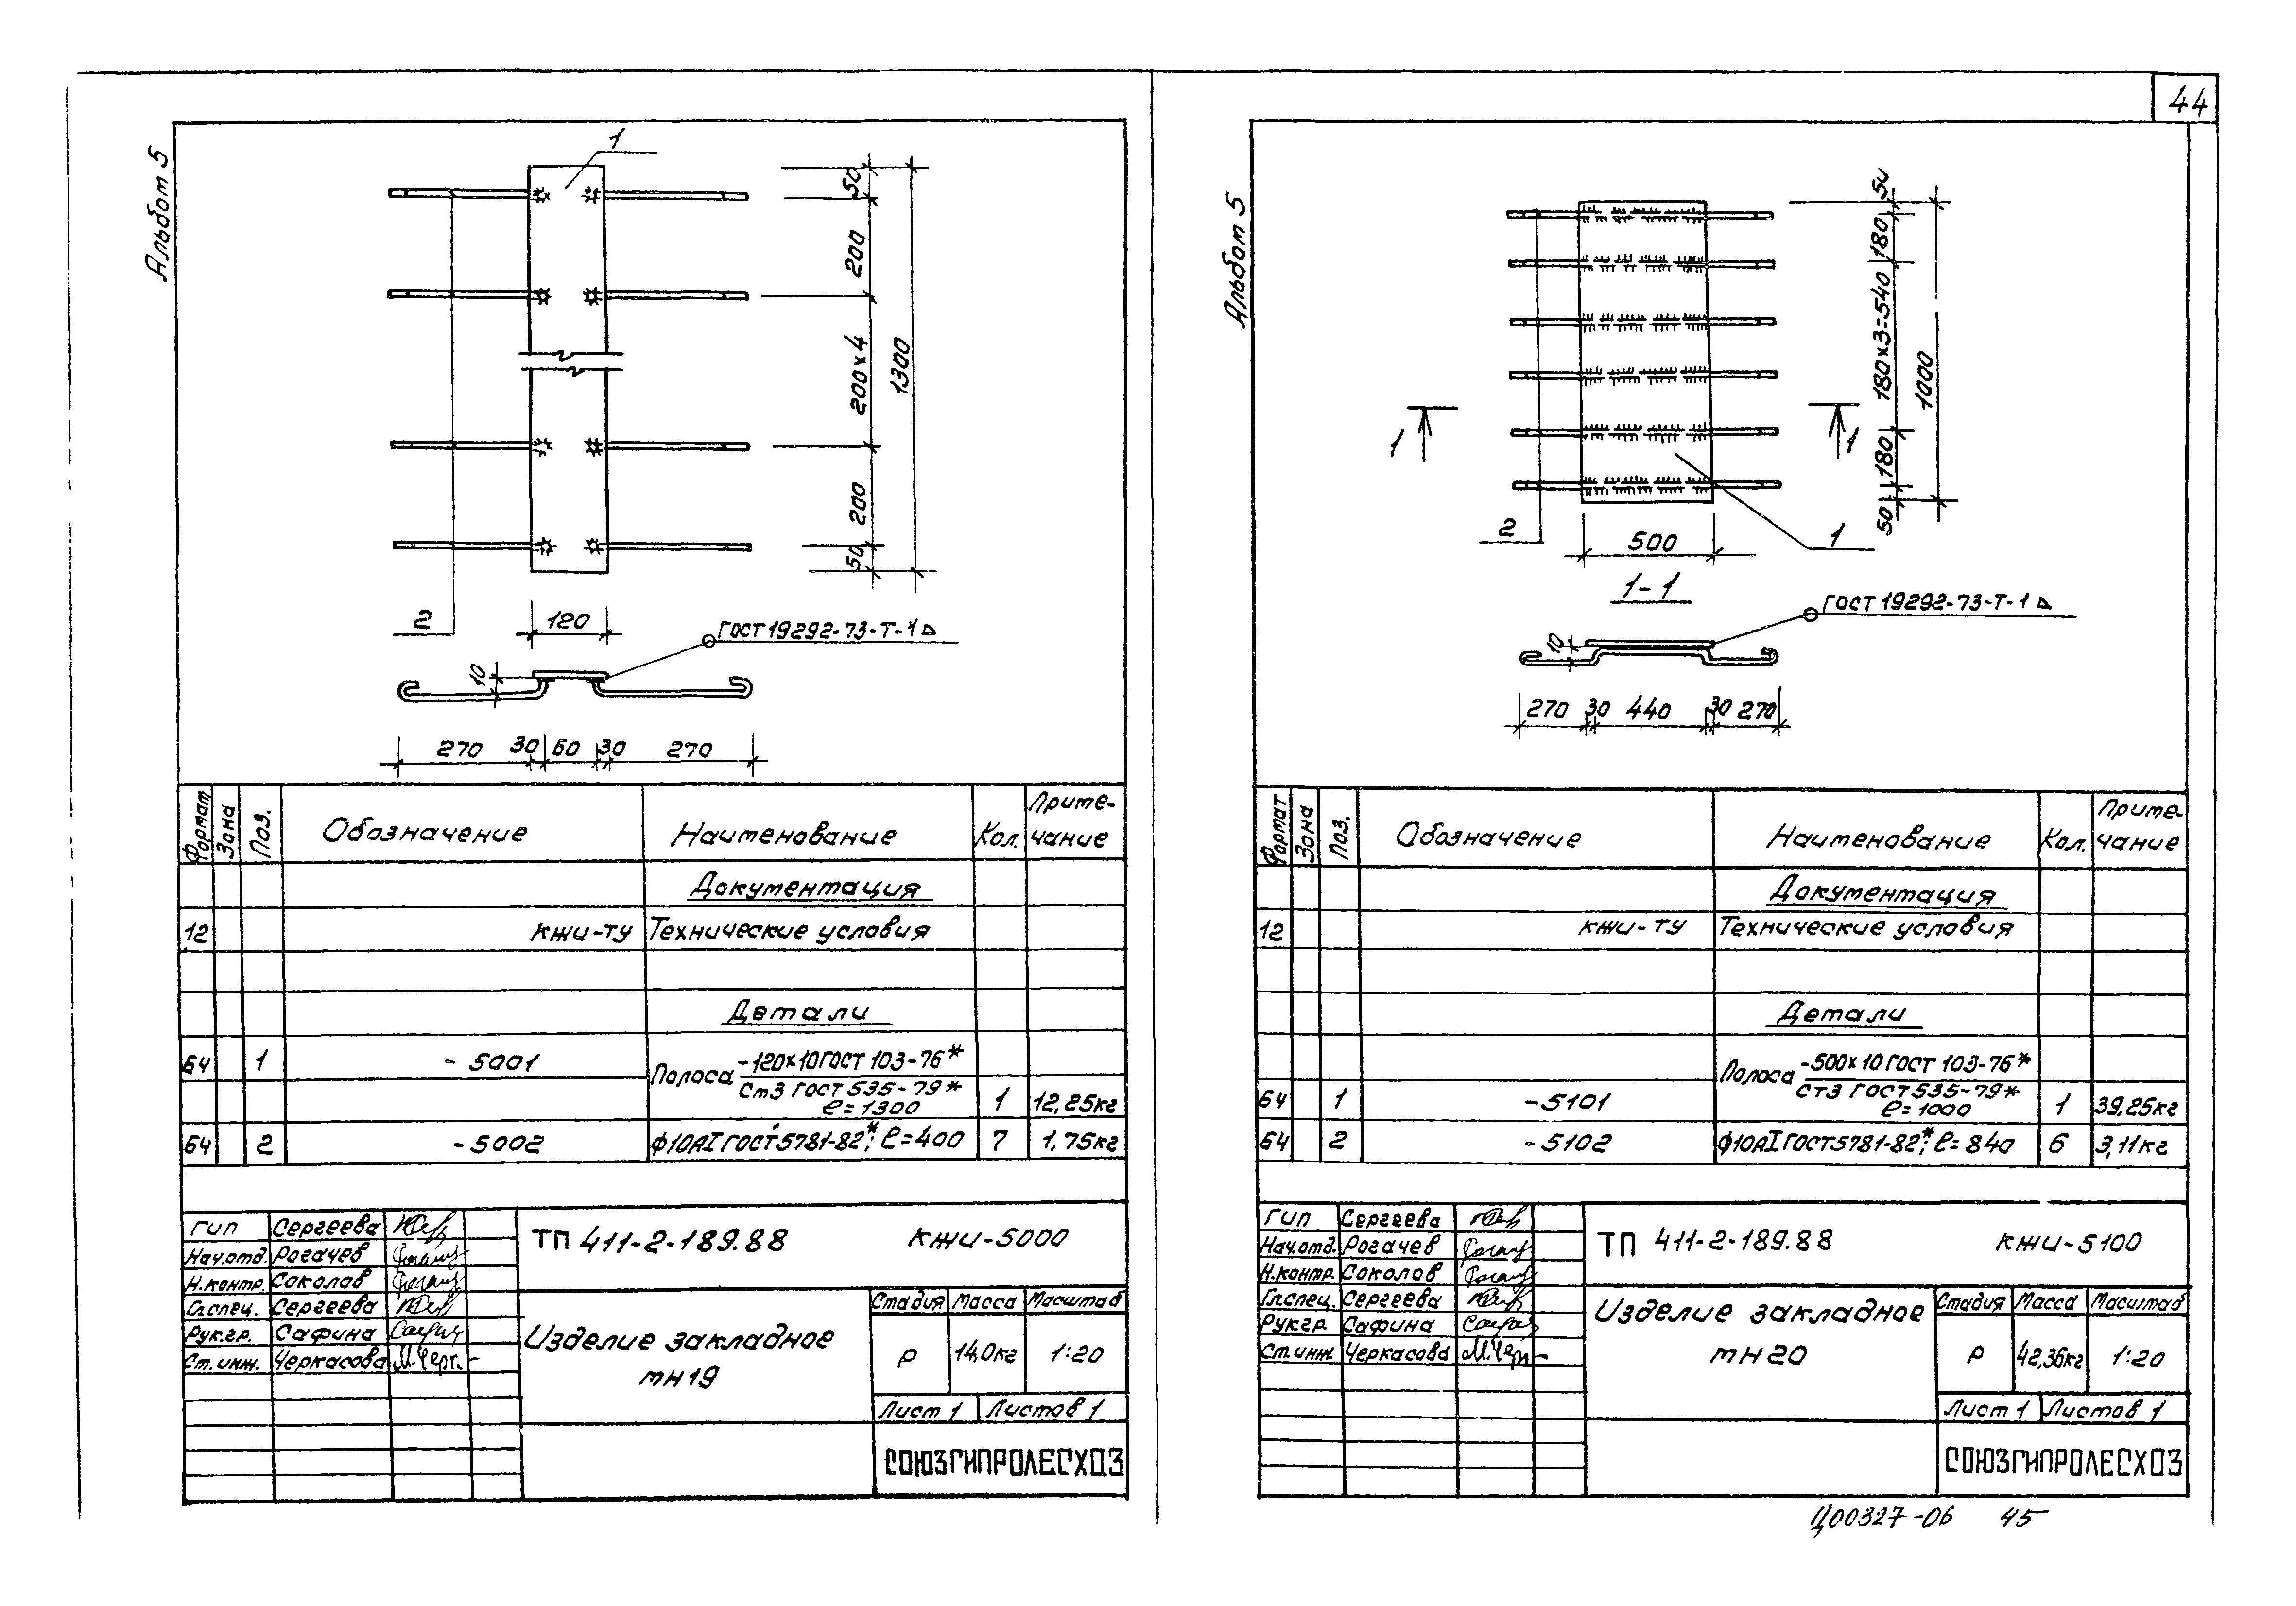 44
Альбом 5
1
50
200
200×4
1300
200
50
2
120
ГОСТ 19292-73-Т-1
10
270 30 60 30 270
Формат Зона Поз. Обозначение Наименование Кол. Примечание
Документация
12 КЖИ-ТУ Технические условия
Детали
Б4 1 -5001 Полоса -120×10 ГОСТ 103-76*
Ст3 ГОСТ 535-79*
ℓ=1300 1 12,25кг
Б4 2 -5002 ф10АI ГОСТ 5781-82*; ℓ=400 7 1,75кг
ГИП Сергеева
Нач.отд. Рогачев
Н.контр. Соколов
Гл.спец. Сергеева
Рук.гр. Сафина
Ст.инж. Черкасова
ТП 411-2-189.88 КЖИ-5000
Изделие закладное
МН19
Стадия Масса Масштаб
Р 14,0кг 1:20
Лист 1 Листов 1
СОЮЗГИПРОЛЕСХОЗ
Альбом 5
50
180
180×3=540
1000
180
50
1 1
2
500
1
1-1
ГОСТ 19292-73-Т-1
10
270 30 440 30 270
Формат Зона Поз. Обозначение Наименование Кол. Примечание
Документация
12 КЖИ-ТУ Технические условия
Детали
Полоса -500×10 ГОСТ 103-76*
Ст3 ГОСТ 535-79*
Б4 1 -5101 ℓ=1000 1 39,25кг
Б4 2 -5102 ф10АI ГОСТ 5781-82*; ℓ=840 6 3,11кг
ГИП Сергеева
Нач.отд. Рогачев
Н.контр. Соколов
Гл.спец. Сергеева
Рук.гр. Сафина
Ст.инж. Черкасова
ТП 411-2-189.88 КЖИ-5100
Изделие закладное
МН20
Стадия Масса Масштаб
Р 42,36кг 1:20
Лист 1 Листов 1
СОЮЗГИПРОЛЕСХОЗ
Ц00327-06 45